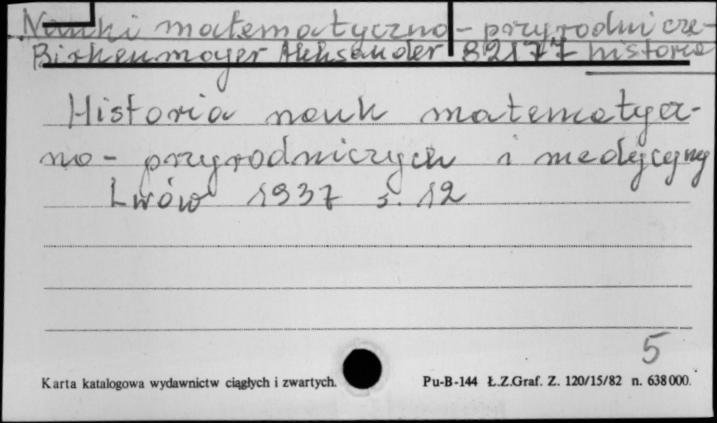 Nauki matematyczno-przyrodnicze-
Birkenmajer Aleksander 82177 historia
Historia nauk matematycz-
no-przyrodniczych i medycyny
Lwów 1937 s. 12
5
Karta katalogowa wydawnictw ciągłych i zwartych.
Pu-B-144 Ł.Z.Graf. Z. 120/15/82 n. 638000.